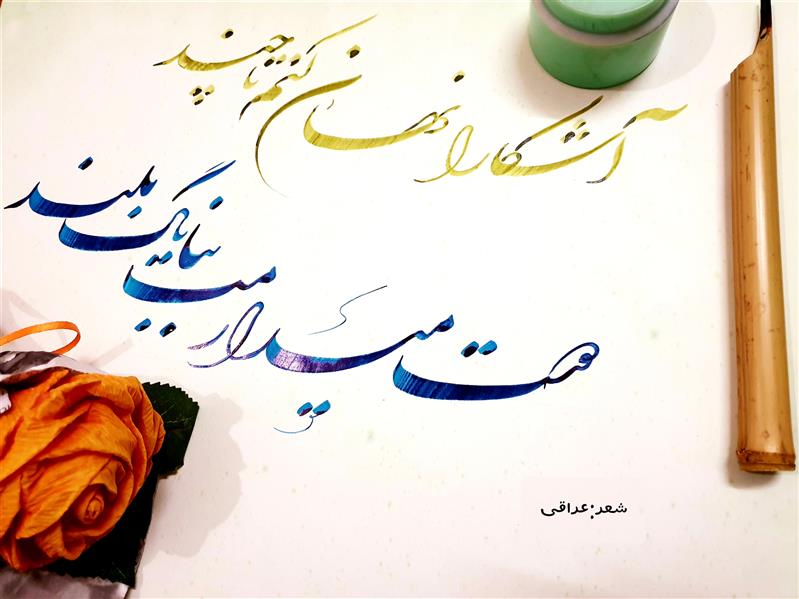 آشکارا نهان کنم تا چند
دوست میدارمت ببانگ بلند
شعر:عراقی